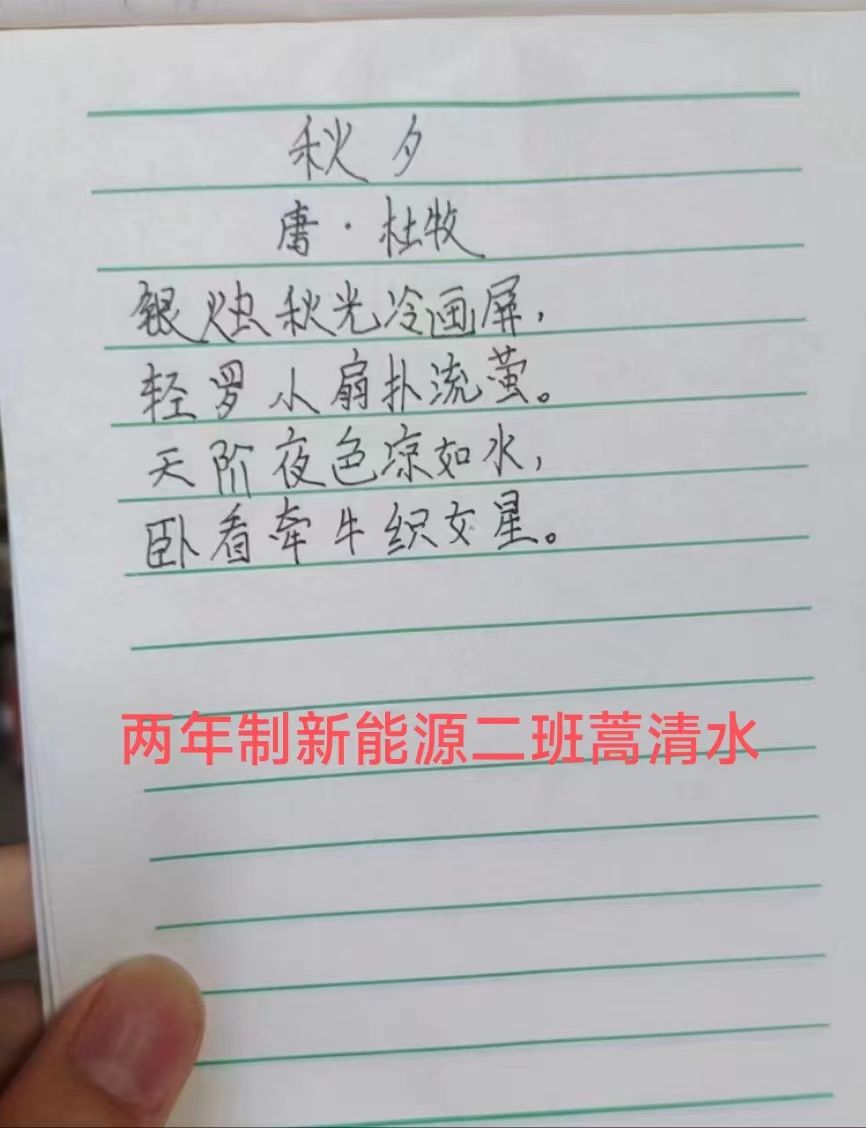 秋夕
唐·杜牧
银烛秋光冷画屏，
轻罗小扇扑流萤。
天阶夜色凉如水，
卧看牵牛织女星。
两年制新能源二班蒿清水